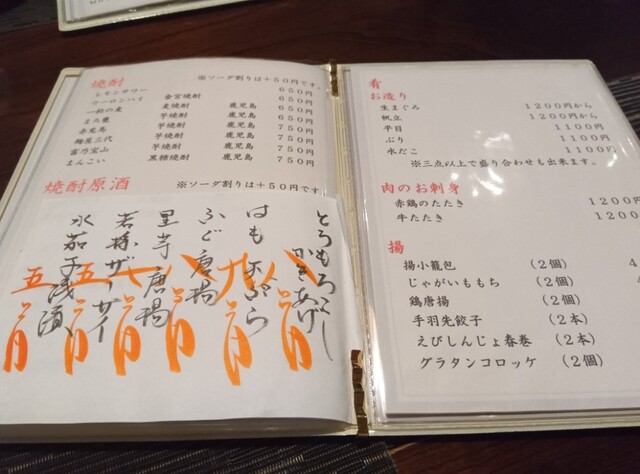 焼酎 ※ソーダ割りは+50円です。
レモンサワー 650
ウーロンハイ 金宮焼酎 650
一粒の麦 麦焼酎 鹿児島 650
まろ麓 芋焼酎 鹿児島 650円
赤兎馬 芋焼酎 鹿児島 750円
麹屋三代 芋焼酎 鹿児島 750円
富乃宝山 芋焼酎 鹿児島 750円
まんこい 黒糖焼酎 鹿児島 750円
焼酎原酒 ※ソーダ割りは+50円です
とうもろこし
かきあげ
はも天ぷら
ふぐ唐揚
里芋唐揚
若採ザーサイ
水茄子浅漬
肴
お造り
生まぐろ 1200円から
帆立 1200円から
平目 1100円
ぶり 1100円
水だこ 1100円
※三点以上で盛り合わせも出来ます。
肉のお刺身
赤鶏のたたき 1200円
牛たたき 1200
揚
揚小籠包 (2個) 4
じゃがいももち (2個)
鶏唐揚 (2個)
手羽先餃子 (2本)
えびしんじょ春巻 (2本)
グラタンコロッケ (2個)